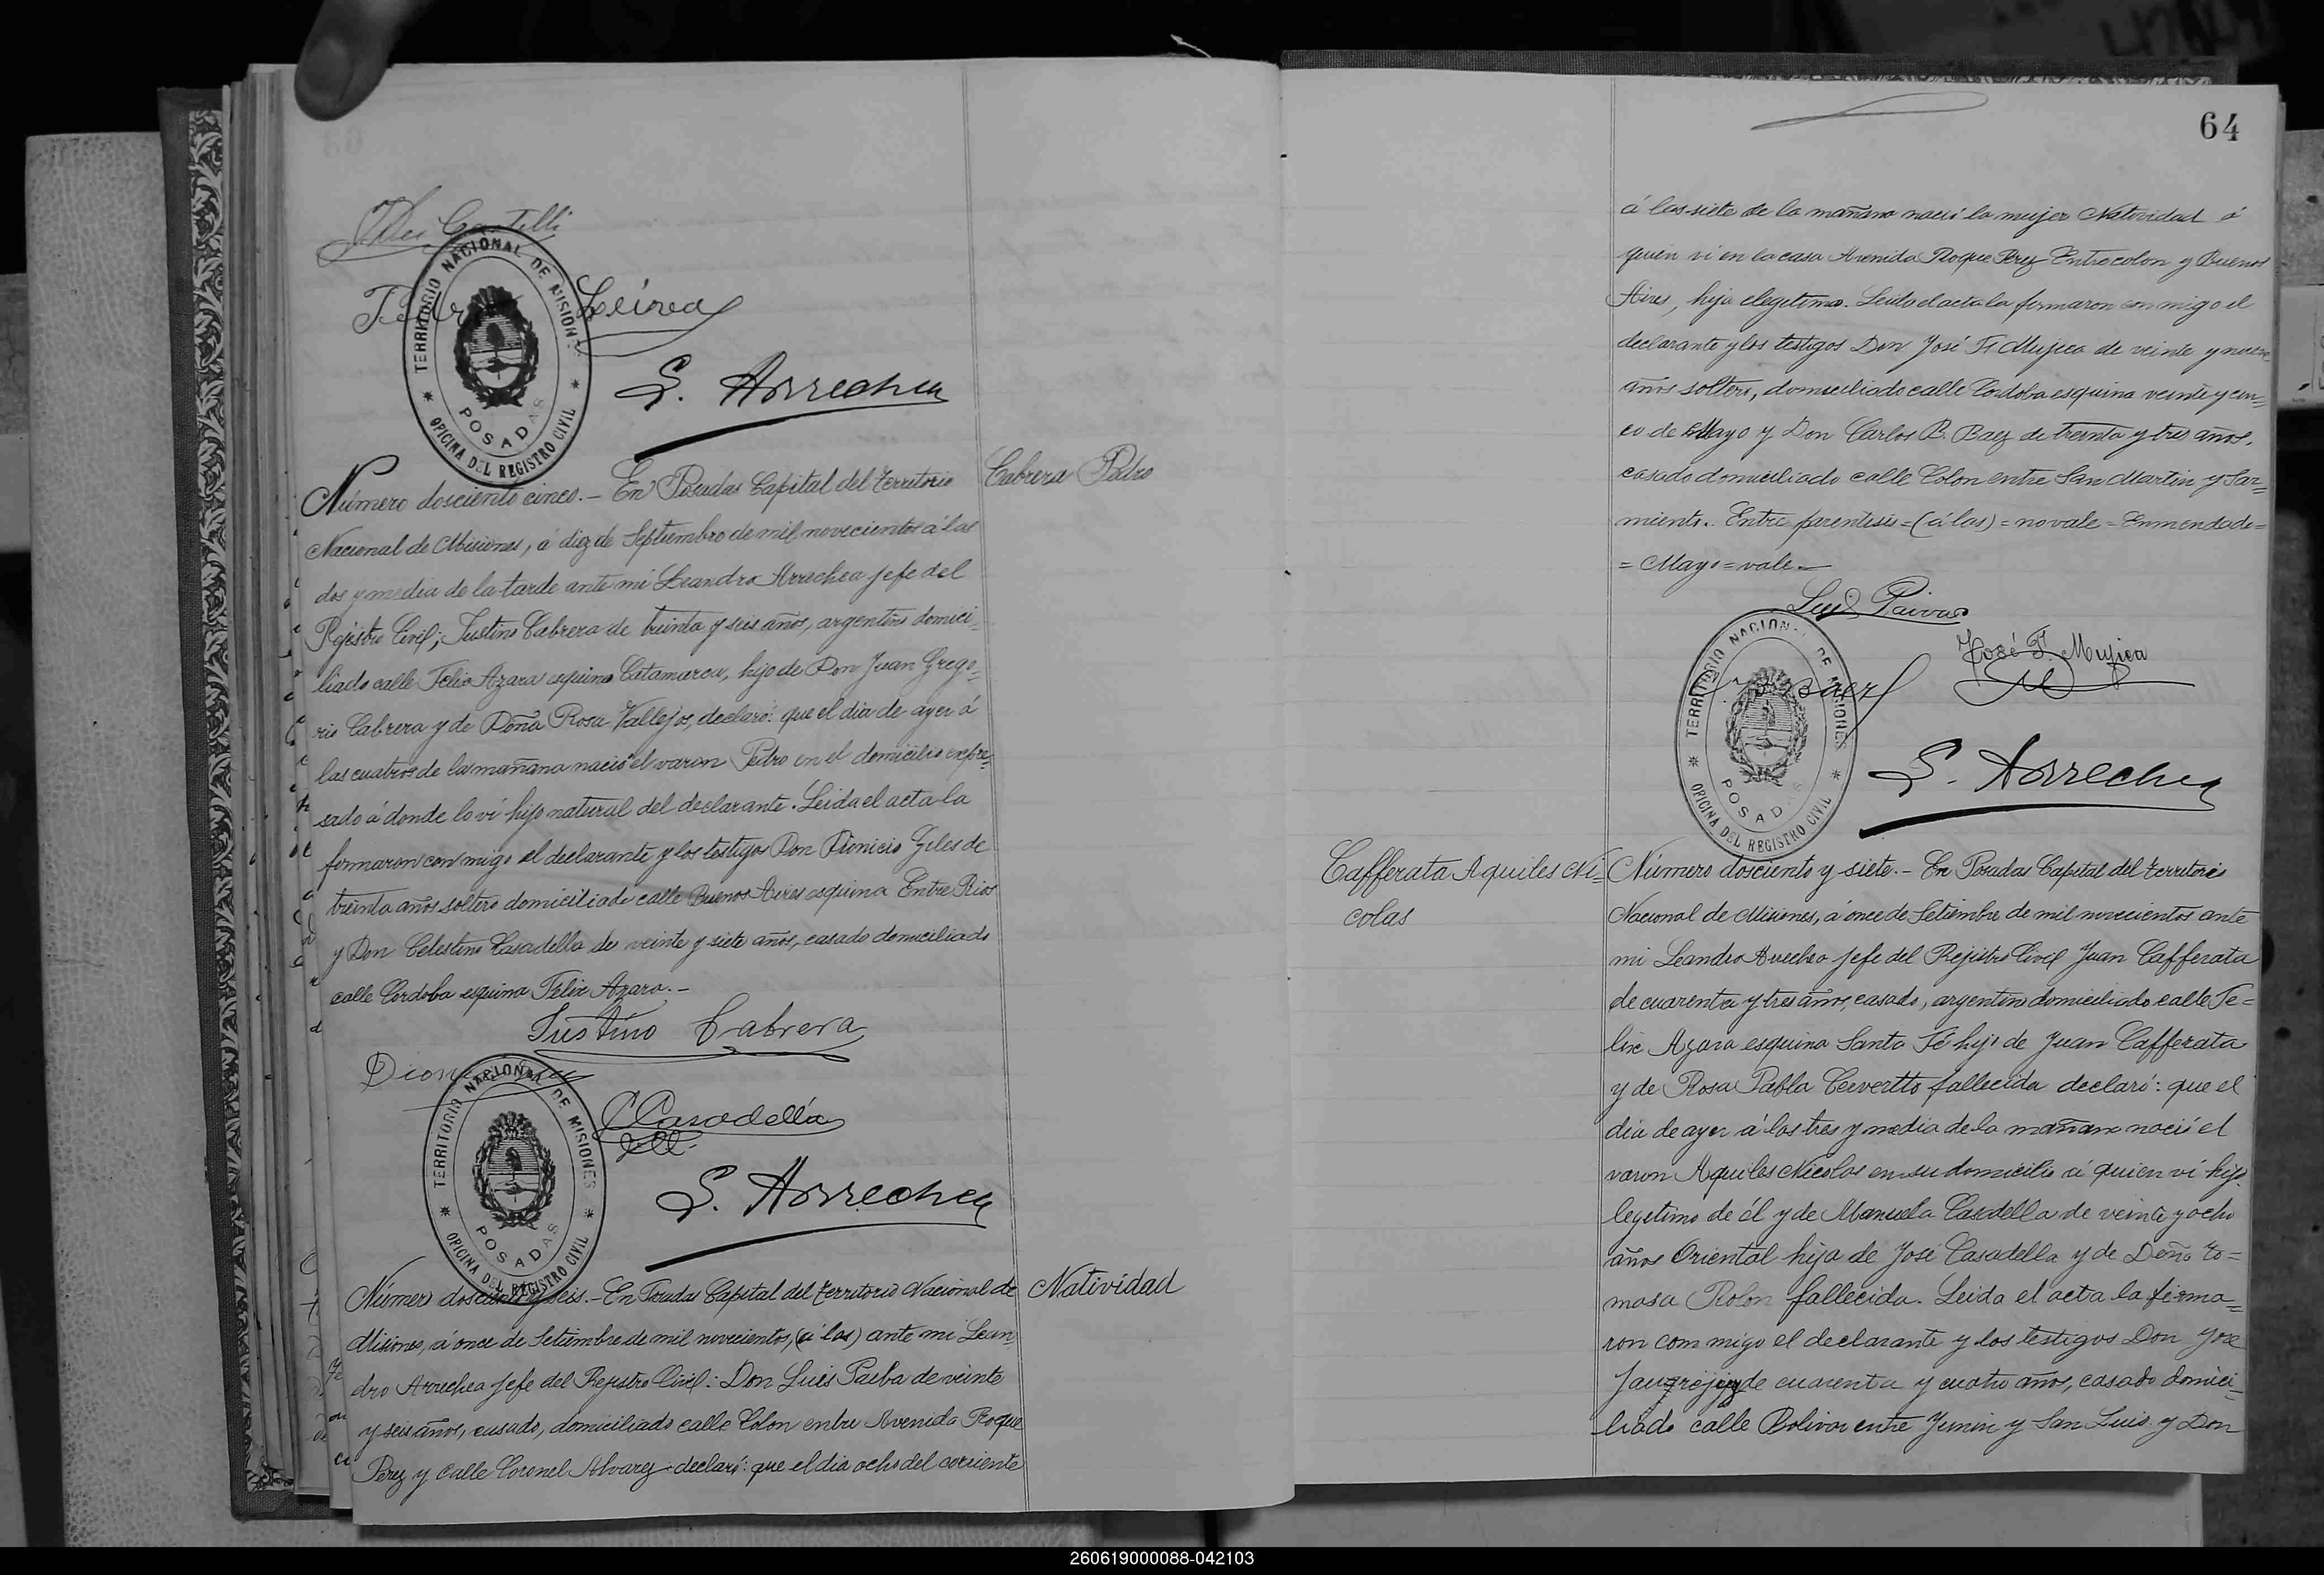 64
TERRITORIO NACIONAL DE MISIONES
POSADAS
OFICINA DEL REGISTRO CIVIL
Leiva
S. Arrechea
Cabrera Pedro
Número dosciento cinco.- En Posadas Capital del territorio
Nacional de Misiones, á diez de Septiembre de mil novecientos á las
dos y media de la tarde ante mi Leandro Arrechea jefe del
Rejistro Civil; Justino Cabrera de treinta y seis años, argentino domici-
liado calle Felix Azara esquina Catamarca, hijo de Don Juan Grego-
rio Cabrera y de Doña Rosa Vallejos, declaró: que el dia de ayer á
las cuatro de la mañana nació el varon Pedro en el domicilio expre-
sado á donde lo ví hijo natural del declarante. Leida el acta la
firmaron con migo el declarante y los testigos Don Dionicio Giles de
treinta años soltero domiciliado calle Buenos Aires esquina Entre Rios
y Don Celestino Casadella de veinte y siete años, casado domiciliado
calle Cordoba esquina Felix Azara.-
Justino Cabrera
C Casadella
TERRITORIO NACIONAL DE MISIONES
POSADAS
OFICINA DEL REGISTRO CIVIL
S. Arrechea
Natividad
Número dosciento y seis.- En Posadas Capital del territorio Nacional de
Misiones, á once de Setiembre de mil novecientos, (á las) ante mi Lean-
dro Arrechea jefe del Rejistro Civil: Don Luis Paiba de veinte
y seis años, casado, domiciliado calle Colon entre Avenida Roque
Perez y Calle Coronel Alvarez declaró: que el dia ocho del corriente
á las siete de la mañana nació la mujer Natividad á
quien ví en la casa Avenida Roque Perez Entre colon y Buenos
Aires, hija elegitima. Leida el acta la firmaron con migo el
declarante y los testigos Don José F. Mujica de veinte y nueve
años soltero, domiciliado calle Cordoba esquina veinte y cin-
co de Mayo y Don Carlos B. Baez de treinta y tres años,
casado domiciliado calle Colon entre San Martin y Sar-
miento. Entre parentesis=(á las)=no vale=Enmendado=
=Mayo=vale.-
Luis Paiva
José F. Mujica
Baez
TERRITORIO NACIONAL DE MISIONES
POSAD
OFICINA DEL REGISTRO CIVIL
S. Arrechea
Cafferata Aquiles Ni-
colas
Número dosciento y siete.- En Posadas Capital del territorio
Nacional de Misiones, á once de Setiembre de mil novecientos ante
mi Leandro Arrechea jefe del Rejistro Civil Juan Cafferata
de cuarenta y tres años, casado, argentino domiciliado calle Fe-
lix Azara esquina Santa Fé hijo de Juan Cafferata
y de Rosa Pabla fallecida declaró: que el
dia de ayer á las tres y media de la mañana nació el
varon Aquiles Nicolas en su domicilio á quien ví hijo
legitimo de él y de Manuela Casadella de veinte y ocho
años Oriental hija de José Casadella y de Doña To-
masa Rolon fallecida. Leida el acta la firma-
ron com migo el declarante y los testigos Don Jose
de cuarenta y cuatro años, casado domici-
liado calle Bolivar entre Junin y San Luis y Don
260619000088-042103